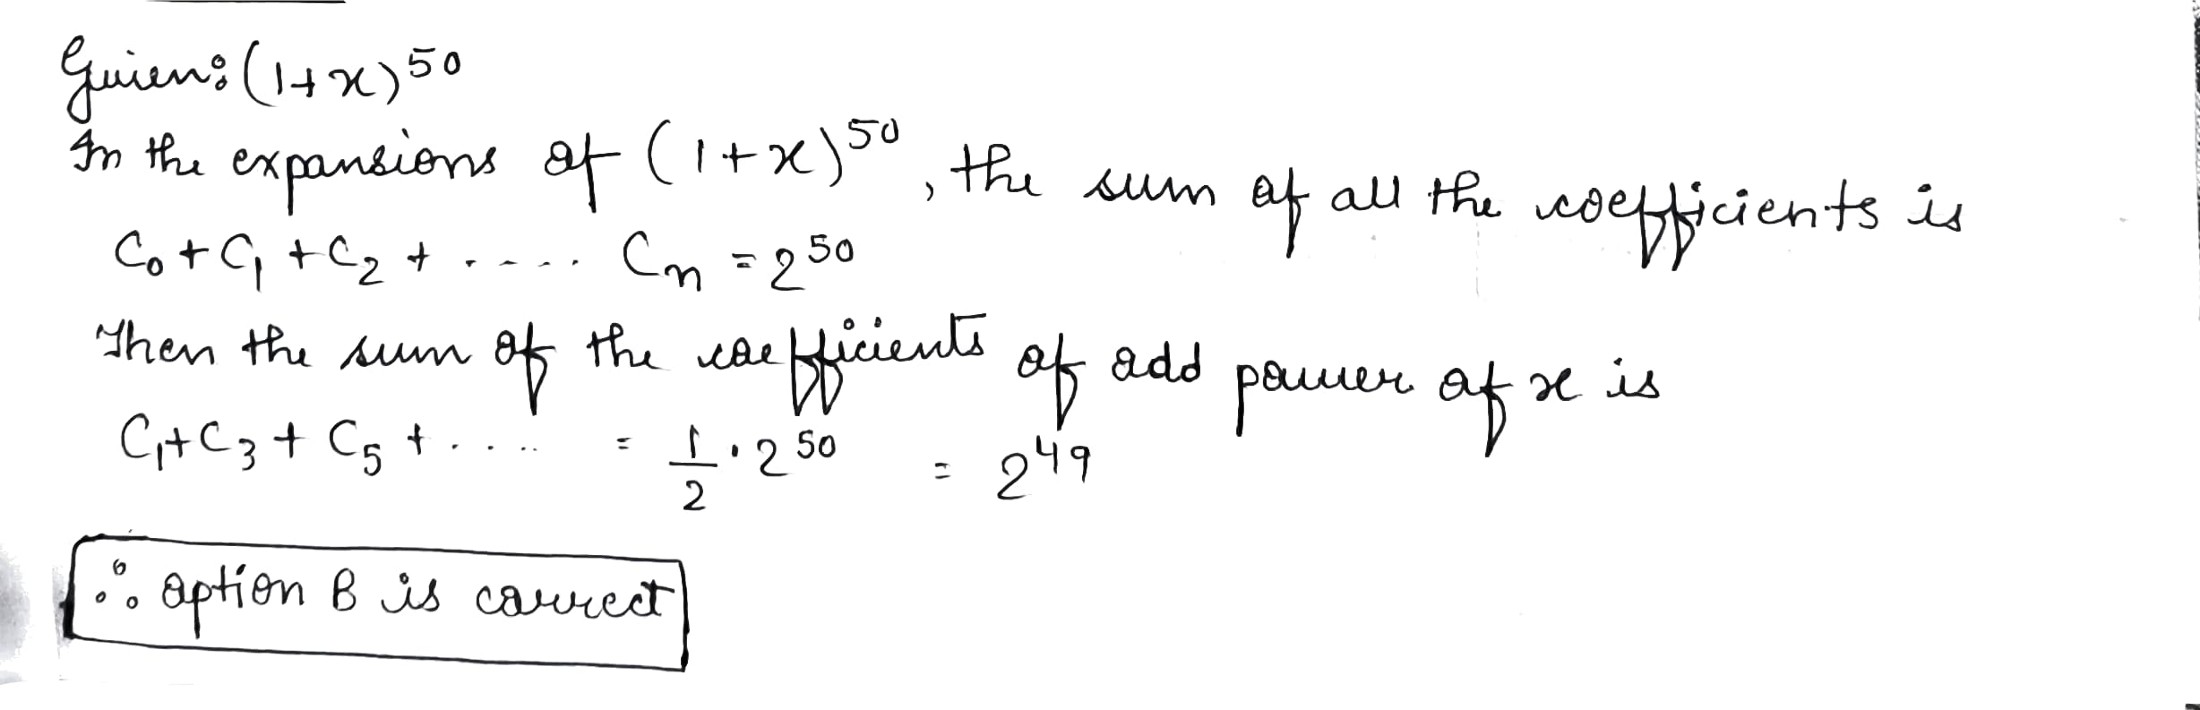 Given: (1+x)^50
In the expansions of (1+x)^50, the sum of all the coefficients is
C₀ + C₁ + C₂ + ..... Cₙ = 2^50
Then the sum of the coefficients of odd power of x is
C₁ + C₃ + C₅ + ..... = 1/2 · 2^50 = 2^49
∴ option B is correct